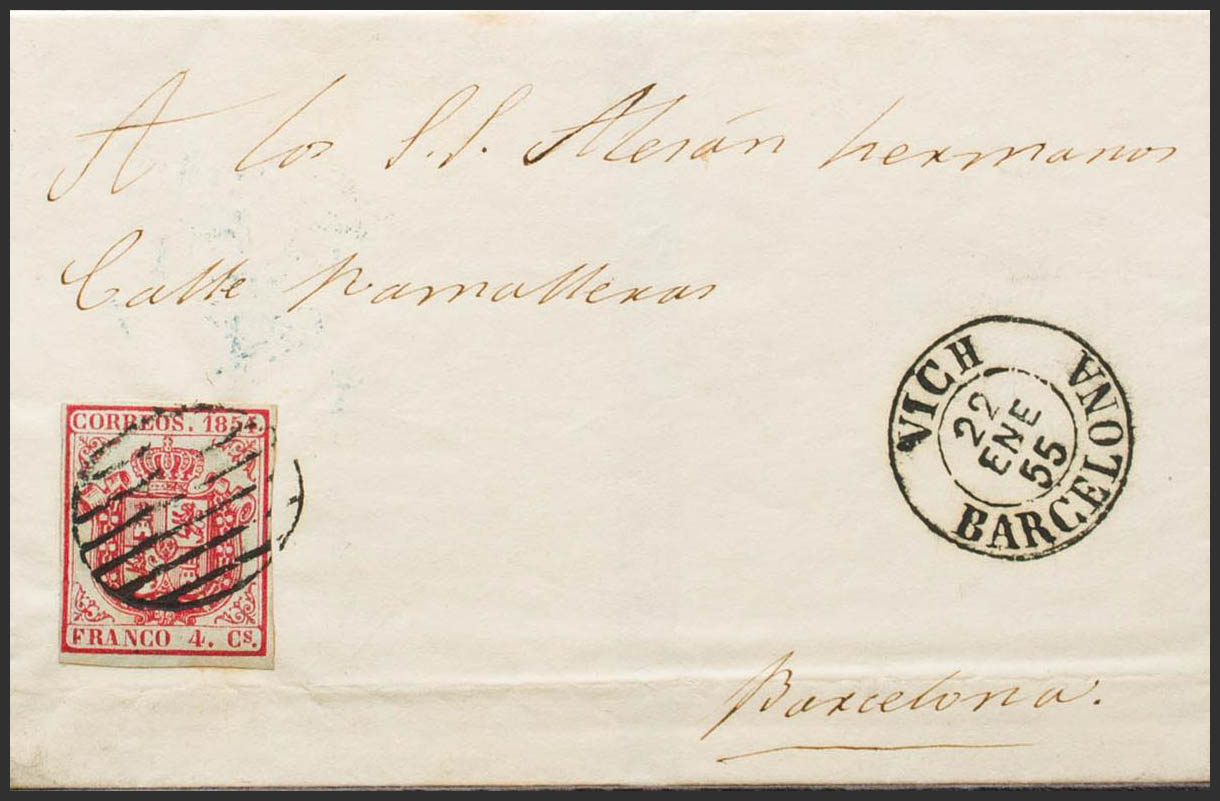 A los S.S. Alerán hermanos
Calle Ramalleras
VICH
22
ENE
55
BARCELONA
CORREOS. 1854.
FRANCO 4. Cs.
Barcelona.